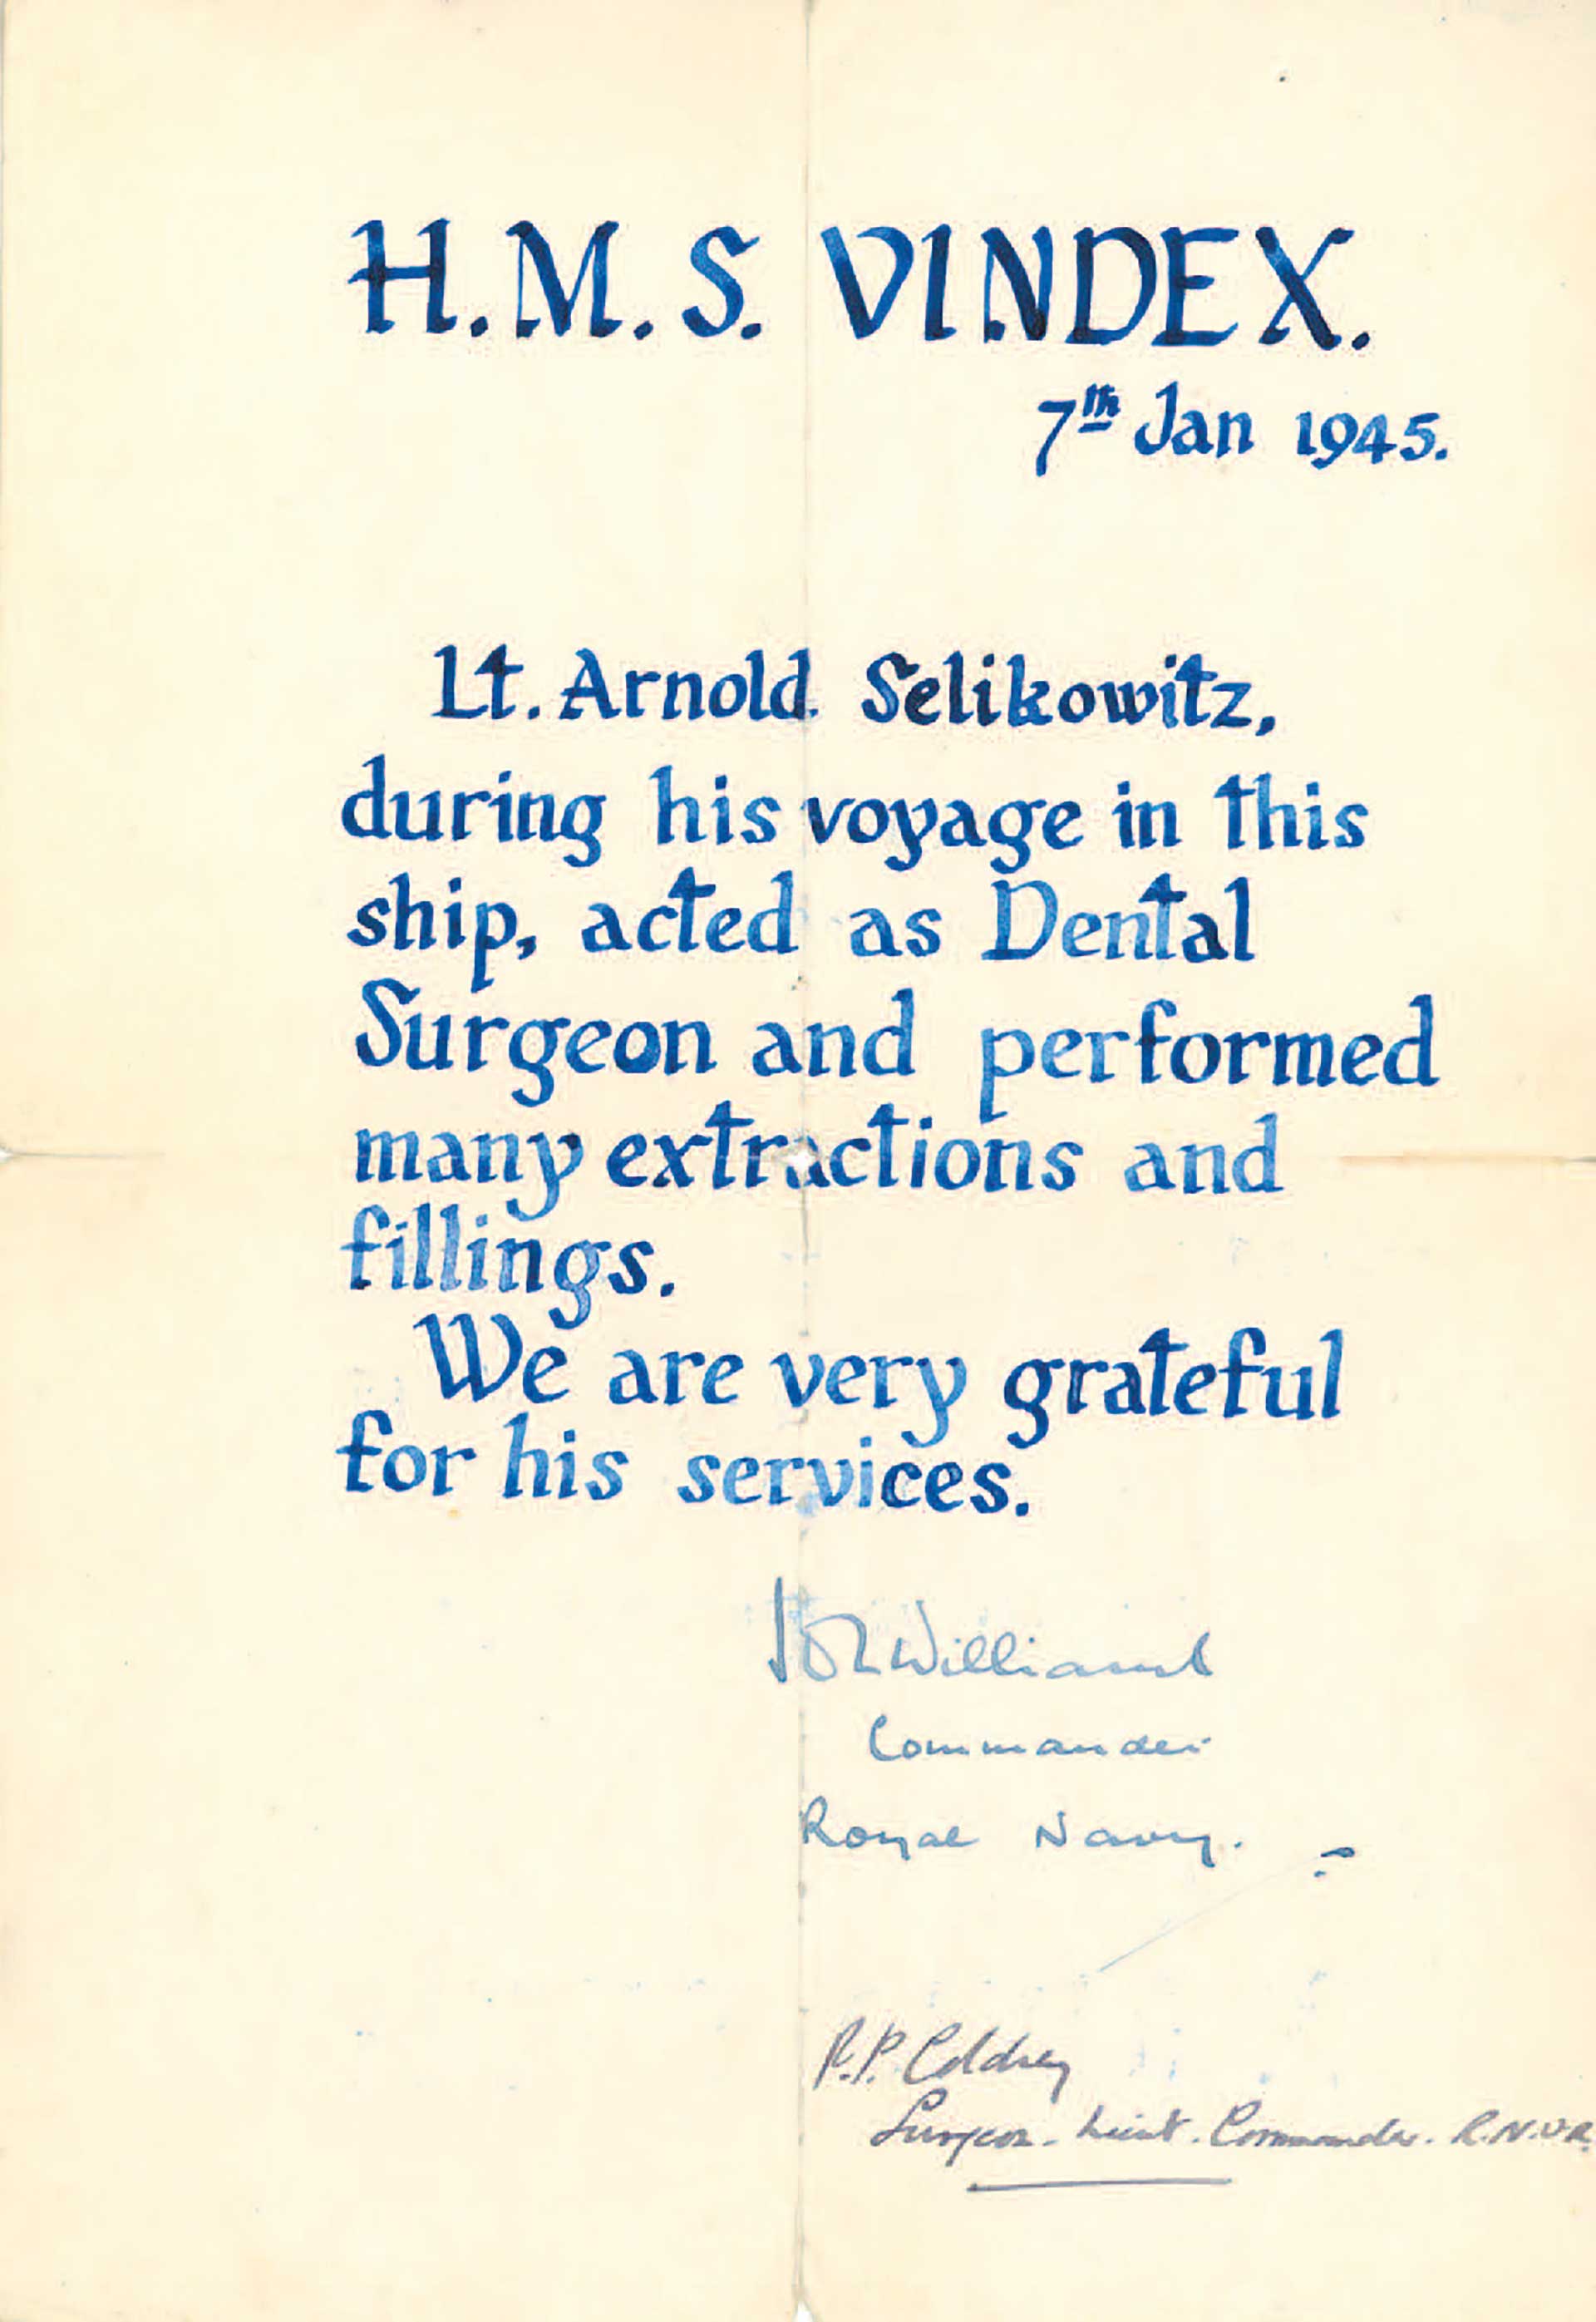 H.M.S. VINDEX.
7th Jan 1945.
Lt. Arnold Selikowitz,
during his voyage in this
ship, acted as Dental
Surgeon and performed
many extractions and
fillings.
We are very grateful
for his services.
Williams
Commander
Royal Navy.
R.P. Coldrey
Surgeon. Lieut. Commander. R.N.V.R.